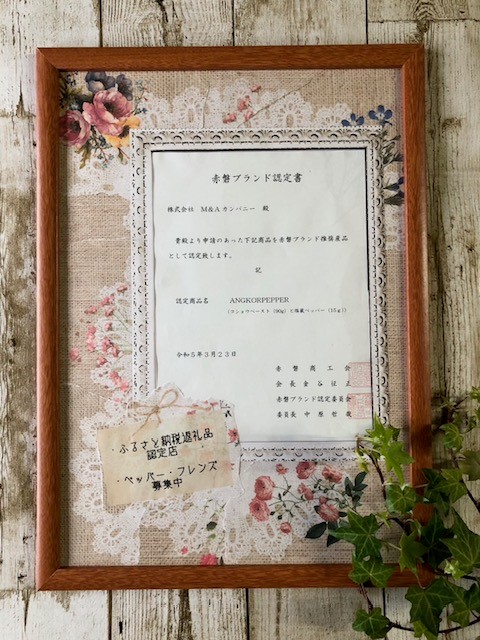 赤磐ブランド認定書
株式会社 M&Aカンパニー 殿
貴殿より申請のあった下記商品を赤磐ブランド推奨産品
として認定致します。
記
認定商品名 ANGKORPEPPER
(コショウペースト(90g)と塩蔵ペッパー(15g))
令和5年3月23日
赤磐商工会
会長金谷征正
赤磐ブランド認定委員会
委員長 中原哲哉
・ふるさと納税返礼品
認定店
・ペッパー・フレンズ
募集中